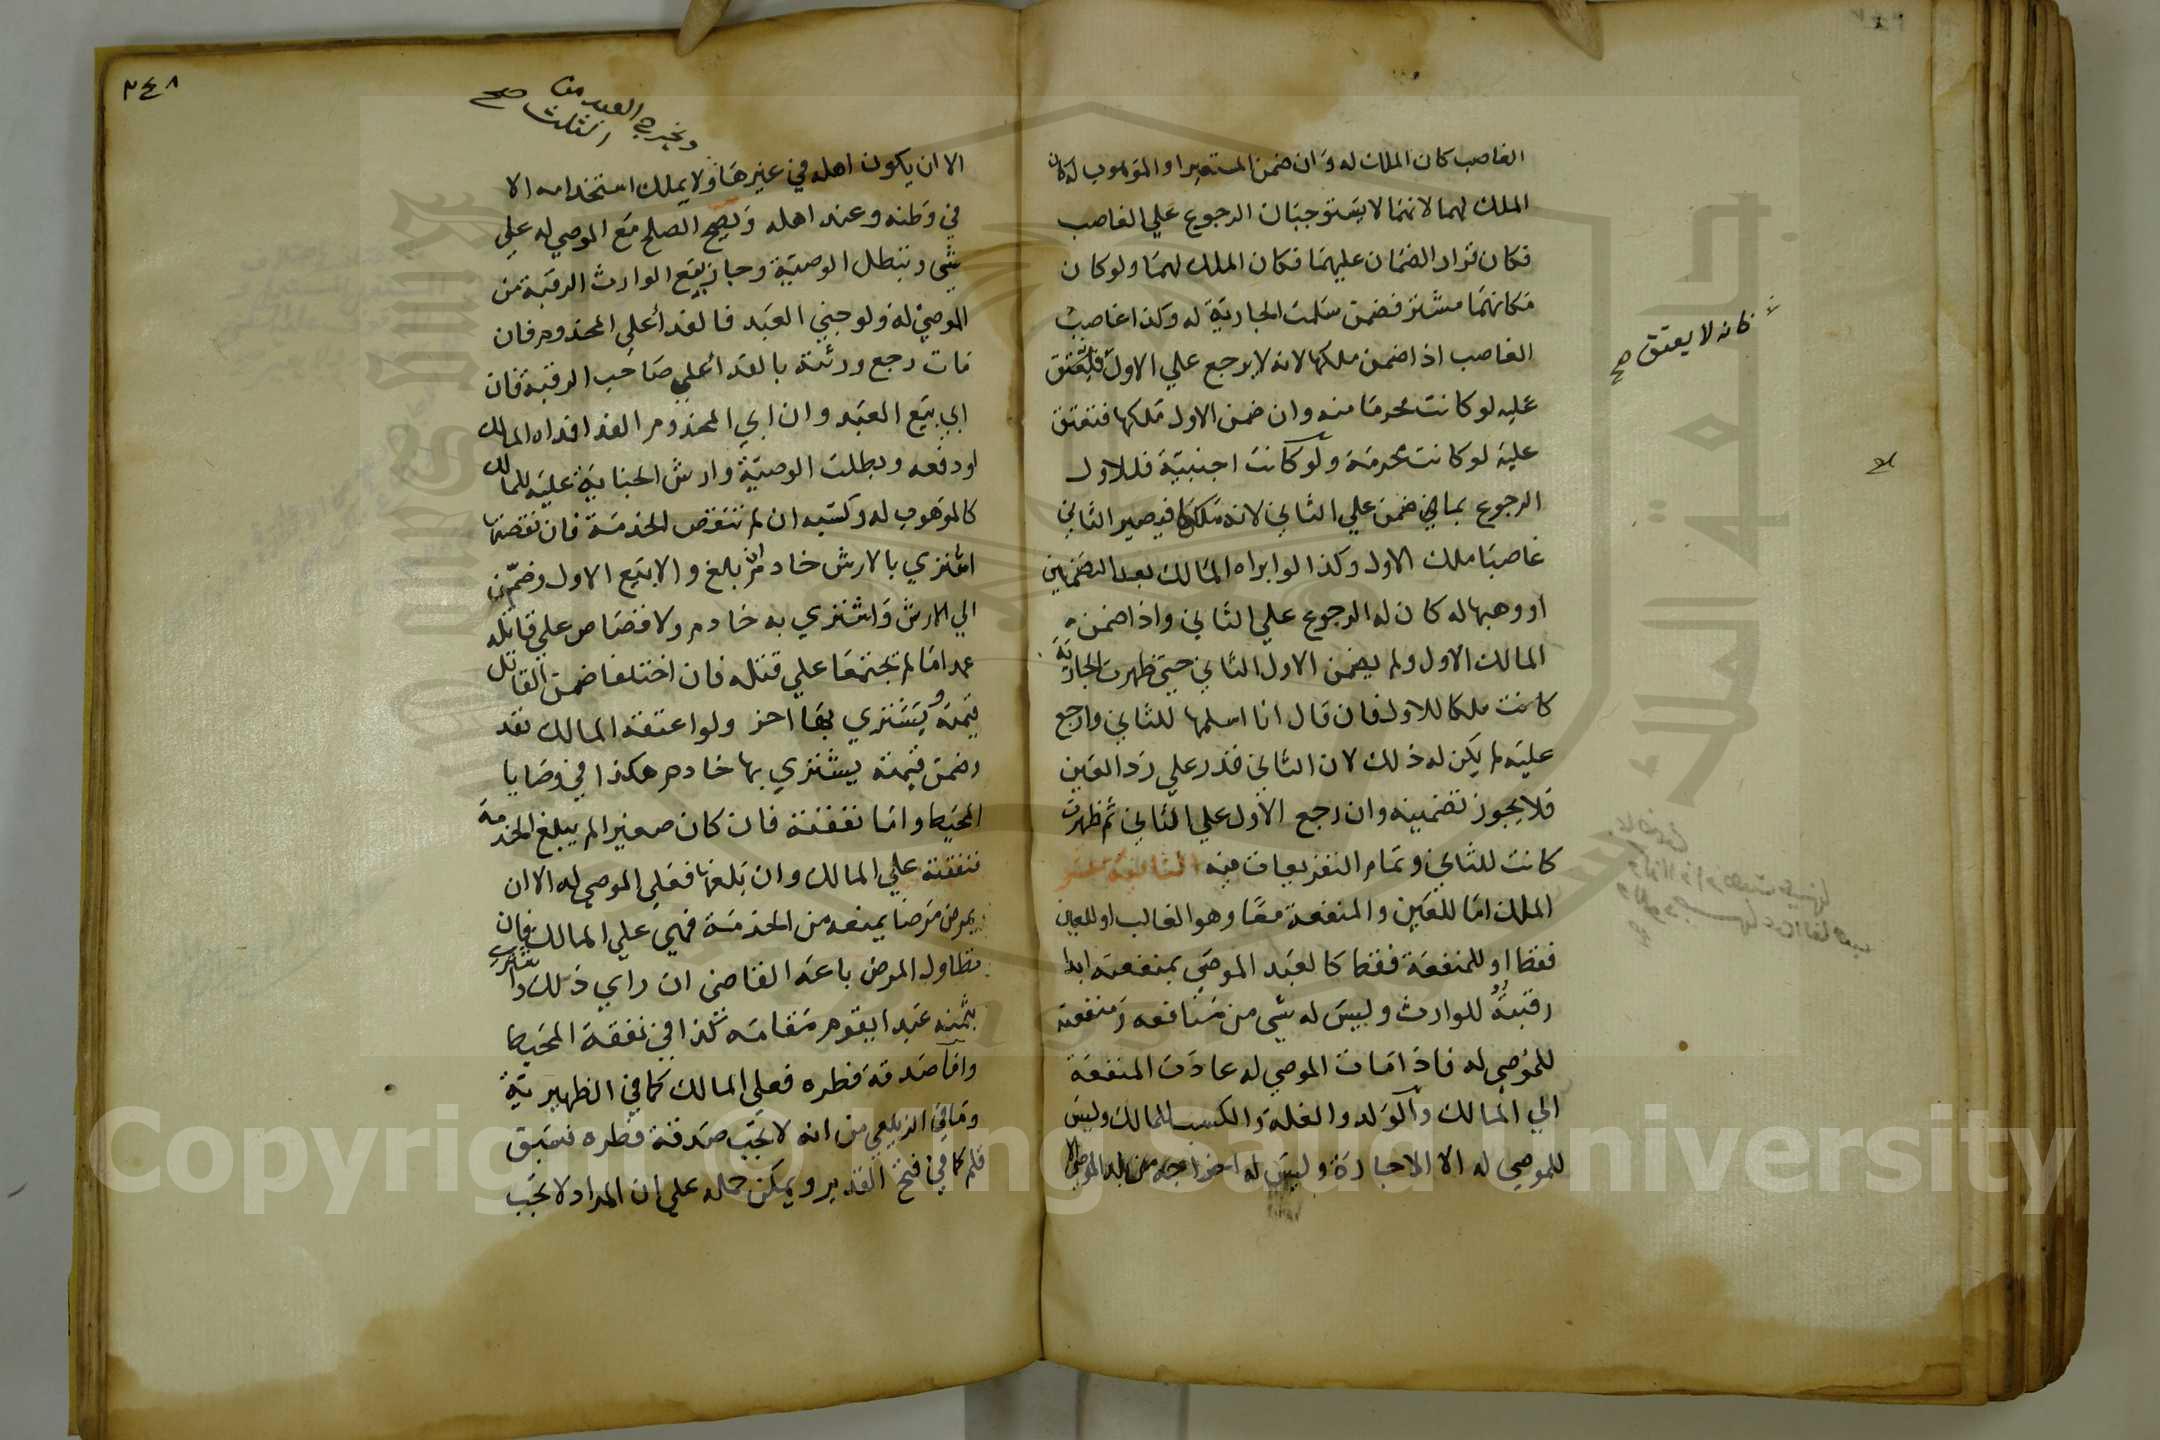 الغاصب كان الملك له وان ضمن المستعير او الموهوب له كان
الملك لهما لانهما لا يستوجبان الرجوع علي الغاصب
فكان قرار الضمان عليهما فكان الملك لهما ولو كان
مكانهما مشتر فضمن سلمت الجارية له وكذا غاصب
الغاصب اذا ضمن ملكها لانه لا يرجع علي الاول فتعتق
عليه لو كانت محرما منه وان ضمن الاول ملكها فتعتق
عليه لو كانت محرمة ولو كانت اجنبية فللاول
الرجوع بما ضمن علي الثاني لانه ملكها فيصير الثاني
غاصبا ملك الاول وكذا لو ابراه المالك بعد التضمين
او وهبها له كان له الرجوع علي الثاني واذا ضمن
المالك الاول ولم يضمن الاول الثاني حتي ظهرت الجارية
كانت ملكا للاول فان قال انا اسلمها للثاني وارجع
عليه لم يكن له ذلك لان الثاني قدر علي رد العين
فلا يجوز تضمينه وان رجع الاول علي الثاني ثم ظهرت
كانت للثاني وتمام التفريعات فيه الثانية عشر
الملك اما للعين والمنفعة معا وهو الغالب او للعين
فقط او للمنفعة فقط كالعبد الموصي بمنفعته ابدا
رقبته للوارث وليس له شي من منافعه ومنفعته
للموصي له فاذا مات الموصي له عادت المنفعة
الي المالك والولد والغلة والكسب للمالك وليس
للموصي له الا الاجارة وليس له اخراجه من بلد الموصي الا
كانه لا يعتق صح
٣٤٨
ويخرج العبد من
الثلث صح
الا ان يكون اهله في غيرها ولا يملك استخدامه الا
في وطنه وعند اهله ويصح الصلح مع الموصي له علي
شي وتبطل الوصية وجاز بيع الوارث الرقبة من
الموصي له ولو جني العبد فالفدا علي المخدوم فان
مات رجع ورثته بالفدا علي صاحب الرقبة فان
ابي بيع العبد وان ابي المخدوم الفدا فداه المالك
او دفعه وبطلت الوصية وارش الجناية عليه للمالك
كالموهوب له وكسبه ان لم تنقص الخدمة فان نقصتها
اشتري بالارش خادم ان بلغ والا بيع الاول وضم
الي الارش واشتري به خادم ولا قصاص علي قاتله
عمدا ما لم يجتمعا علي قتله فان اختلفا ضمن القاتل
قيمته يشتري بها اخر ولو اعتقه المالك نفد
وضمن قيمته يشتري بها خادم هكذا في وصايا
المحيط واما نفقته فان كان صغيرا لم يبلغ الخدمة
فنفقته علي المالك وان بلغها فعلي الموصي له الا ان
يمرض مرضا يمنعه من الخدمة فهي علي المالك فان
تطاول المرض باعه القاضي ان راي ذلك واشتري
بثمنه عبدا يقوم مقامه كذا في نفقة المحيط
واما صدقة فطره فعلي المالك كما في الظهيرية
وما في الزيلعي من انه لا تجب صدقة فطره فسبق
قلم كما في فتح القدير ويمكن حمله علي ان المراد لا تجب
Copyright © King Saud University